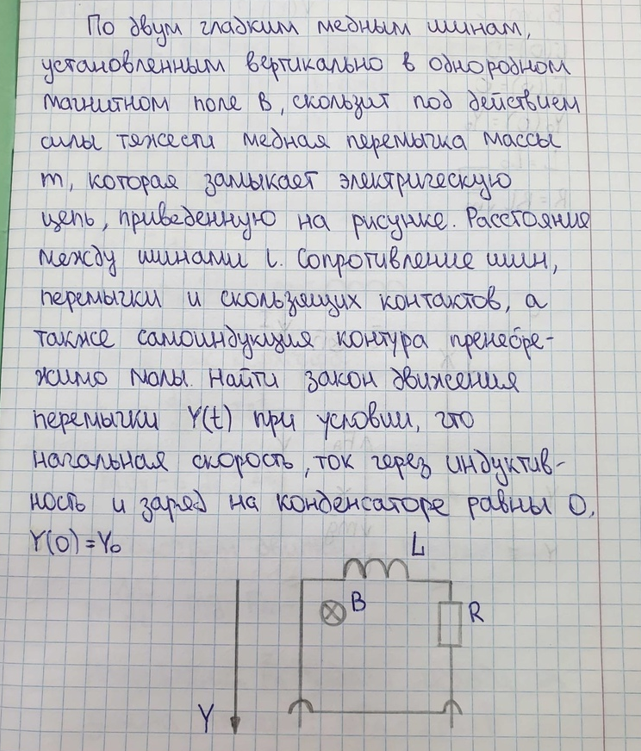 По двум гладким медным шинам,
установленным вертикально в однородном
магнитном поле B, скользит под действием
силы тяжести медная перемычка массы
m, которая замыкает электрическую
цепь, приведенную на рисунке. Расстояние
между шинами l. Сопротивление шин,
перемычки и скользящих контактов, а
также самоиндукция контура пренебре-
жимо малы. Найти закон движения
перемычки Y(t) при условии, что
начальная скорость, ток через индуктив-
ность и заряд на конденсаторе равны 0.
Y(0)=Y₀
L
B
R
Y